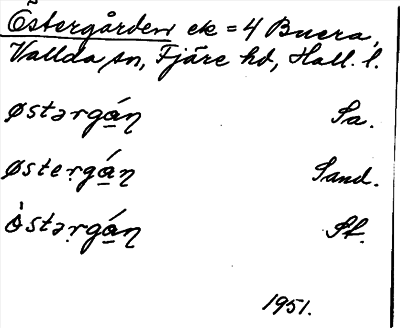 Östergården ek = 4 Buera,
Vallda sn, Fjäre hd, Hall. l.
østərgá̱ɳ Sa.
østeṛgá̱ɳ Sand.
ö̀stəṛgá̱ɳ St.
1951.